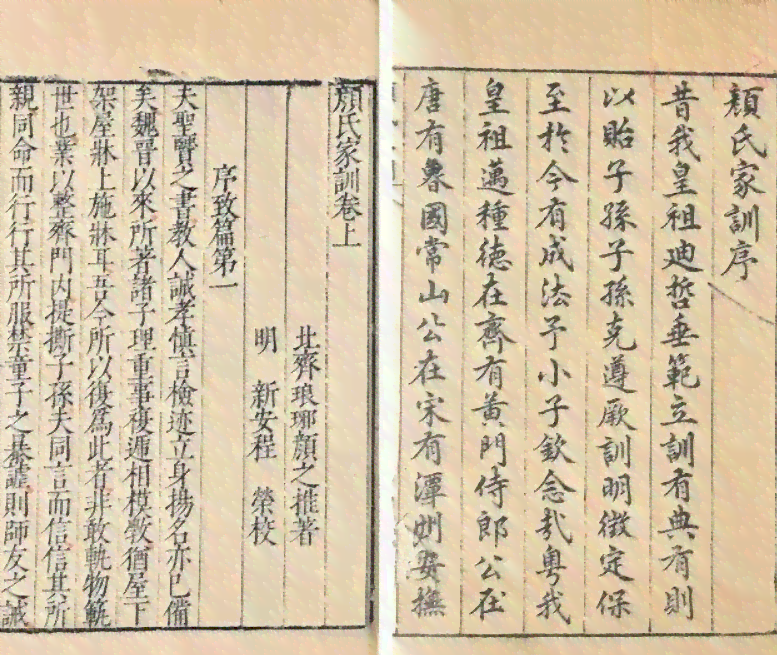 顏氏家訓序
昔我皇祖迪哲垂範立訓有典有則
以貽子孫子孫克遵厥訓明徵定保
至於今有成法予小子欽念哉粵我
皇祖邁種德在齊有黃門侍郎公在
唐有魯國常山公在宋有潭州安撫
顏氏家訓卷上
北齊琅琊顏之推著
明 新安程 榮校
序致篇第一
夫聖賢之書教人誠孝慎言檢迹立身揚名亦已備
矣魏晉以來所著諸子理重事複遞相模敩猶屋下
架屋牀上施牀耳吾今所以復為此者非敢軌物範
世也業以整齊門內提撕子孫夫同言而信信其所
親同命而行行其所服禁童子之暴謔則師友之誡